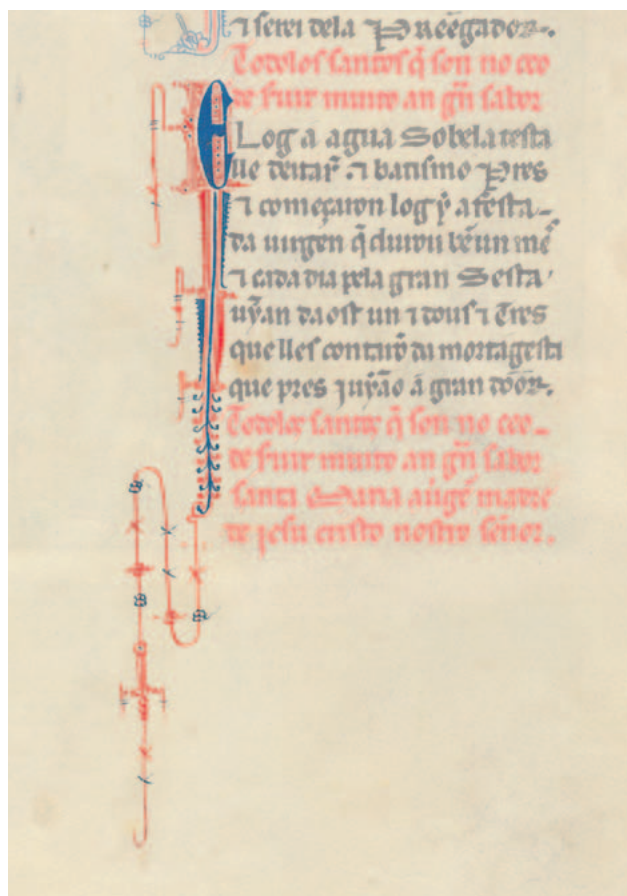 ⁊ serei dela Preegador.
Todolos santos q̃ son no ceo
de seruir muito an gñ sabor
Log a agua Sobela testa
lle deitar̃ . ⁊ batismo Pres
⁊ começaron log ỹ a festa
da uirgen q̃ durou bẽ un mes
⁊ cada dia pela gran Sesta
uỹan da ost un ⁊ dous ⁊ Tres
que lles contarõ da mortagesta
que pres juyão á gran door.
Todolos santos q̃ son no ceo
de seruir muito an gñ sabor
santa Maria uirgẽ madre
de jesu cristo nostro señor.